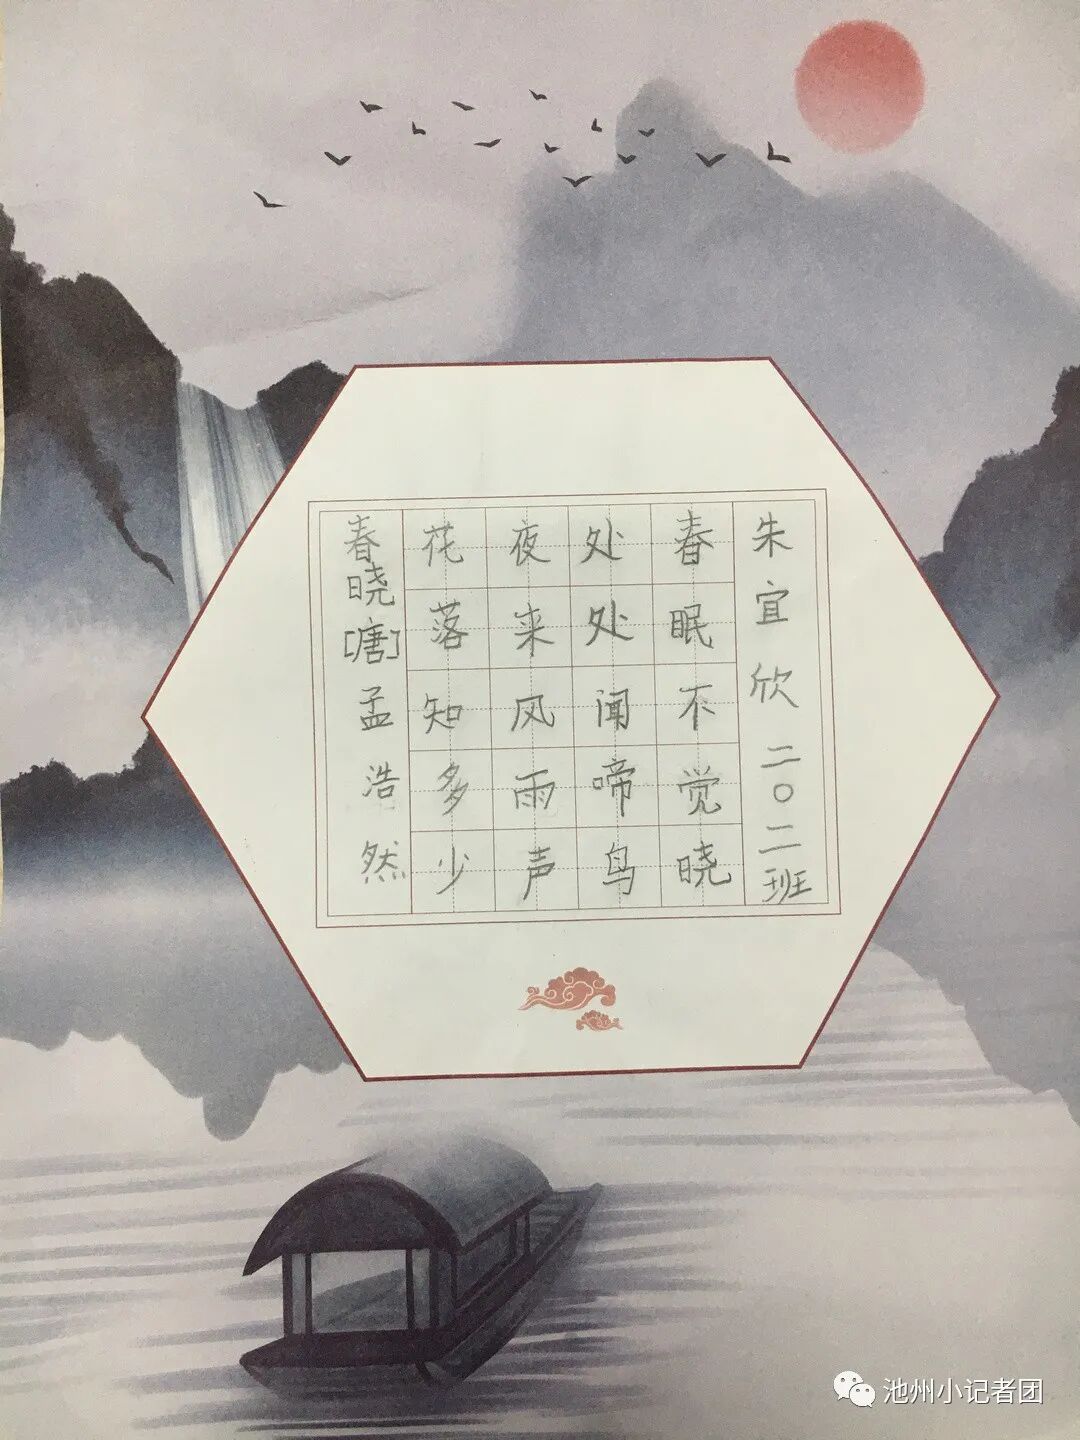 朱宜欣二〇二班
春眠不觉晓
处处闻啼鸟
夜来风雨声
花落知多少
春晓[唐]孟浩然
池州小记者团